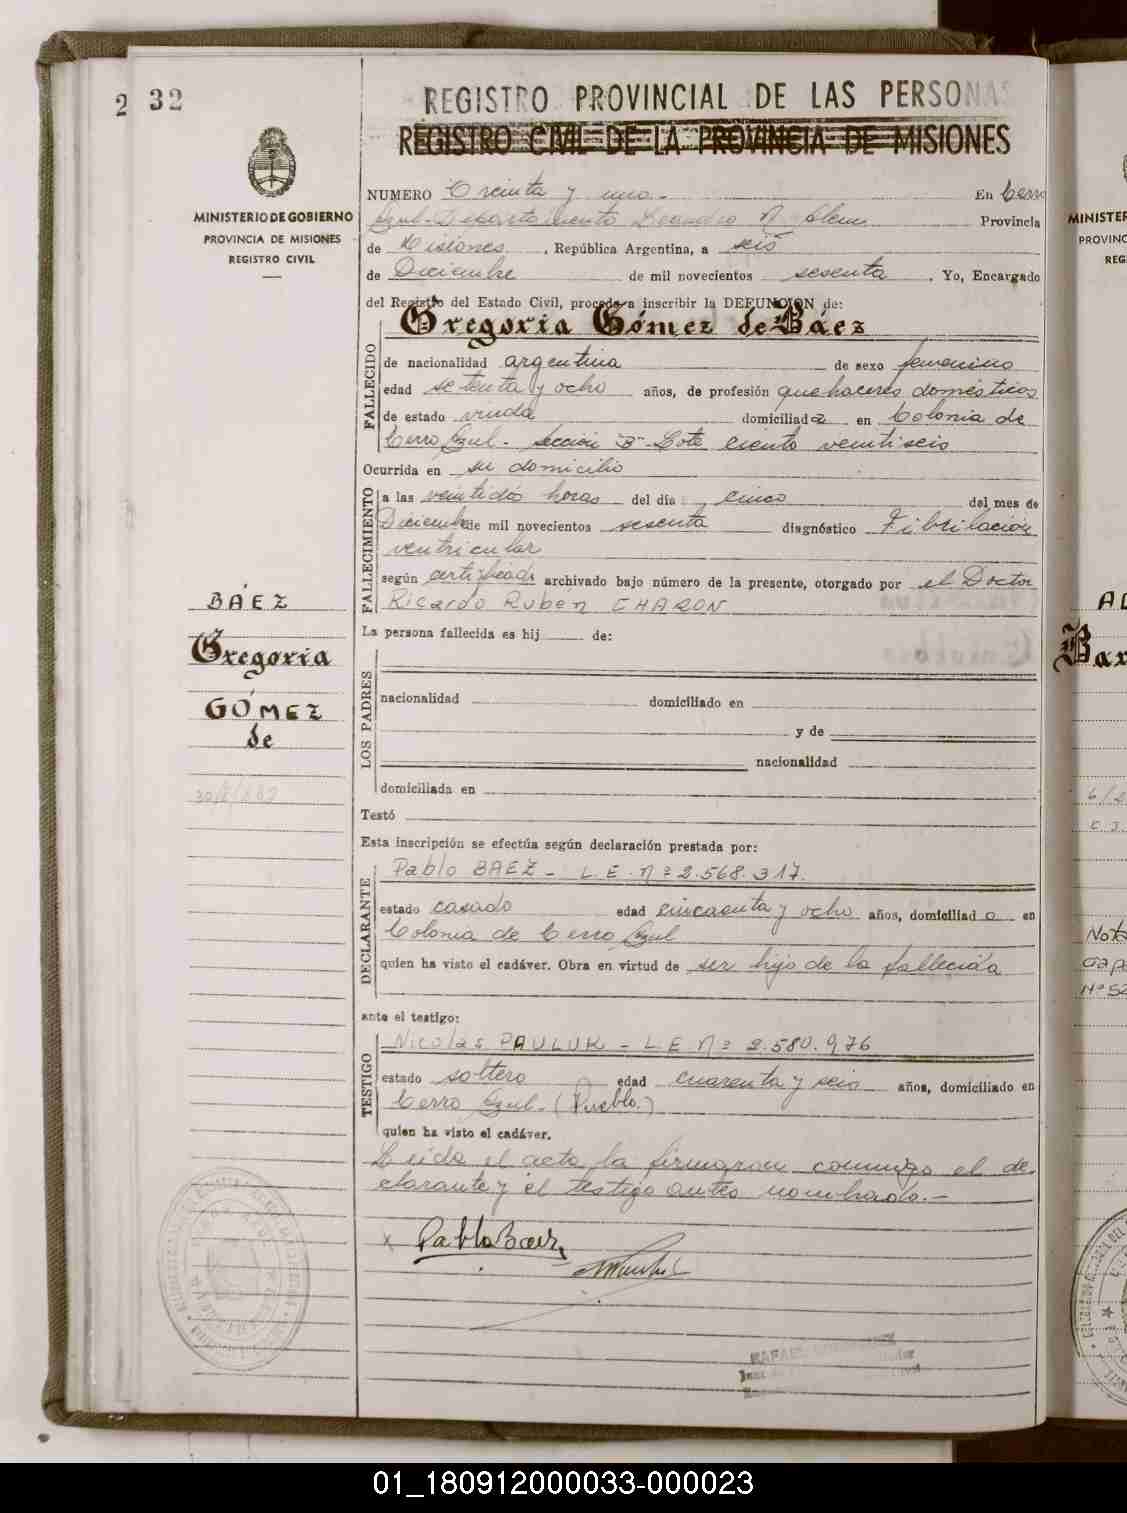 2 32
REGISTRO PROVINCIAL DE LAS PERSONAS
REGISTRO CIVIL DE LA PROVINCIA DE MISIONES
MINISTERIO DE GOBIERNO
PROVINCIA DE MISIONES
REGISTRO CIVIL
NUMERO Treinta y uno.- En Cerro
Azul-Departamento Leandro N. Alem Provincia
de Misiones, República Argentina, a seis
de Diciembre de mil novecientos sesenta. Yo, Encargado
del Registro del Estado Civil, procedo a inscribir la DEFUNCION de:
FALLECIDO
Gregoria Gómez de Báez
de nacionalidad argentina de sexo femenino
edad setenta y ocho años, de profesión quehaceres domésticos
de estado viuda domiciliada en Colonia de
Cerro Azul- Sección "B"- Lote ciento veintiseis
Ocurrida en su domicilio
FALLECIMIENTO
a las veintidós horas del día cinco del mes de
Diciembre de mil novecientos sesenta diagnóstico Fibrilación
ventricular
según certificado archivado bajo número de la presente, otorgado por el Doctor
Ricardo Rubén CHARON
La persona fallecida es hij de:
LOS PADRES
nacionalidad domiciliado en
y de
nacionalidad
domiciliada en
Testó
Esta inscripción se efectúa según declaración prestada por:
DECLARANTE
Pablo BAEZ - L.E. Nº 2.568.317.
estado casado edad cincuenta y ocho años, domiciliado en
Colonia de Cerro Azul
quien ha visto el cadáver. Obra en virtud de ser hijo de la fallecida
ante el testigo:
TESTIGO
Nicolás PAULUK - L.E Nº 2.580.976
estado soltero edad cuarenta y seis años, domiciliado en
Cerro Azul- (Pueblo.)
quien ha visto el cadáver.
Leída el acta la firmaron conmigo el de
clarante y el testigo antes nombrado.-
x Pablo Baez
BÁEZ
Gregoria
GÓMEZ
de
MINISTER
PROVINC
REG
AL
Bar
Nota
Nº 52
01_180912000033-000023